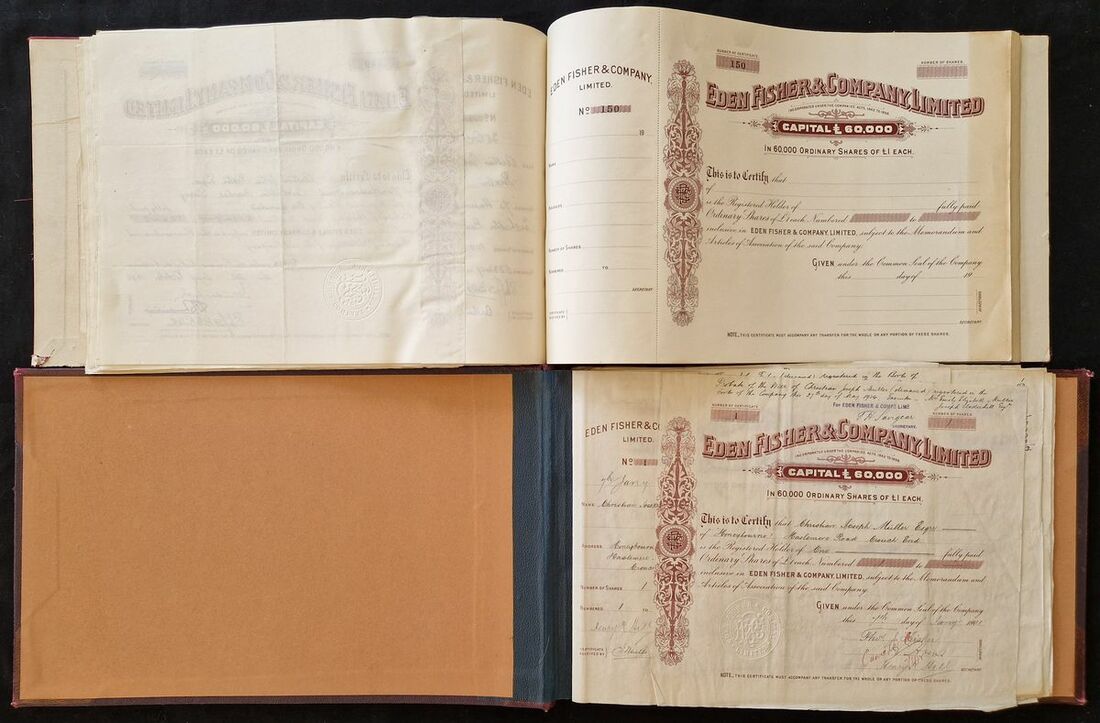 EDEN FISHER & COMPANY,
LIMITED.
No 150
19
NAME
ADDRESS
NUMBER OF SHARES
NUMBERED TO
SECRETARY
CERTIFICATE
RECEIVED BY
NUMBER OF CERTIFICATE
150
NUMBER OF SHARES
EDEN FISHER & COMPANY, LIMITED
INCORPORATED UNDER THE COMPANIES ACTS, 1862 TO 1898.
CAPITAL £ 60,000
IN 60,000 ORDINARY SHARES OF £1 EACH.
This is to Certify that
of
is the Registered Holder of fully paid
Ordinary Shares of £1 each, Numbered to
inclusive in EDEN FISHER & COMPANY, LIMITED, subject to the Memorandum and
Articles of Association of the said Company.
GIVEN under the Common Seal of the Company
this day of 19
DIRECTORS
SECRETARY
NOTE, THIS CERTIFICATE MUST ACCOMPANY ANY TRANSFER FOR THE WHOLE OR ANY PORTION OF THESE SHARES.
Probate of the Will of Christian Joseph Muller (deceased) registered in the
books of the Company this 27th day of May 1914.
For EDEN FISHER & COMPY LIMD
SECRETARY.
EDEN FISHER & C
LIMITED.
No 1
7th Jany
NAME Christian Joseph
ADDRESS
Honeybourne
Haslemere
Crouch
NUMBER OF SHARES 1
NUMBERED 1 TO
Henry R Hill
CERTIFICATE
RECEIVED BY
NUMBER OF CERTIFICATE
1
NUMBER OF SHARES
1
EDEN FISHER & COMPANY, LIMITED
INCORPORATED UNDER THE COMPANIES ACTS, 1862 TO 1898.
CAPITAL £ 60,000
IN 60,000 ORDINARY SHARES OF £1 EACH.
This is to Certify that Christian Joseph Muller Esqre
of "Honeybourne" Haslemere Road Crouch End
is the Registered Holder of One fully paid
Ordinary Shares of £1 each, Numbered 1 to
inclusive in EDEN FISHER & COMPANY, LIMITED, subject to the Memorandum and
Articles of Association of the said Company.
GIVEN under the Common Seal of the Company
this 7th day of Jany 1901
Cancelled
Henry R Hill
DIRECTORS
SECRETARY
NOTE, THIS CERTIFICATE MUST ACCOMPANY ANY TRANSFER FOR THE WHOLE OR ANY PORTION OF THESE SHARES.